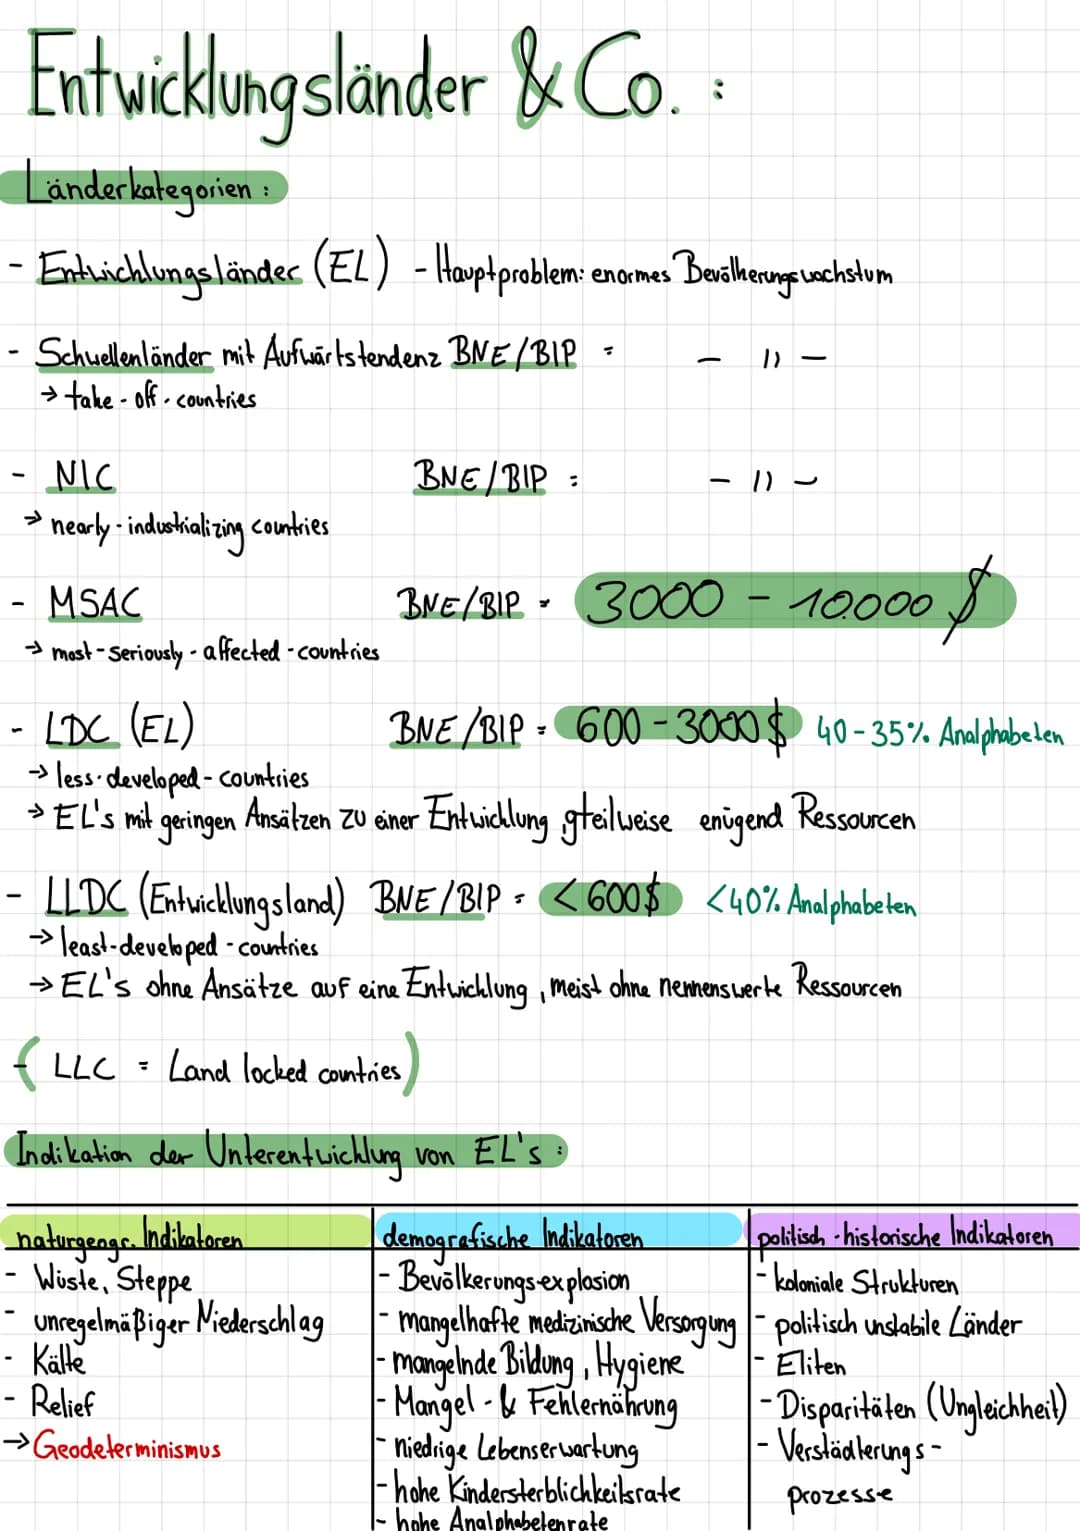 Entwicklungsländer & Co. :
Länderkategorien :
- Entwicklungsländer (EL) - Hauptproblem: enormes Bevölkerungswachstum
- Schwellenländer mit Aufwärtstendenz BNE/BIP = - 11 -
→ take-off-countries
- NIC BNE/BIP = - 11 -
→ nearly-industrializing countries
- MSAC BNE/BIP = 3000 - 10.000 $
→ most-seriously-affected-countries
- LDC (EL) BNE/BIP = 600 - 3000 $ 40-35% Analphabeten
→ less-developed-countries
→ EL's mit geringen Ansätzen zu einer Entwicklung gteilweise enügend Ressourcen
- LLDC (Entwicklungsland) BNE/BIP = < 600$ <40% Analphabeten
→ least-developed-countries
→ EL's ohne Ansätze auf eine Entwicklung, meist ohne nennenswerte Ressourcen
- (LLC = Land locked countries)
Indikation der Unterentwicklung von EL's :
naturgeogr. Indikatoren
- Wüste, Steppe
- unregelmäßiger Niederschlag
- Kälte
- Relief
→ Geodeterminismus
demografische Indikatoren
- Bevölkerungsexplosion
- mangelhafte medizinische Versorgung
- mangelnde Bildung, Hygiene
- Mangel- & Fehlernährung
- niedrige Lebenserwartung
- hohe Kindersterblichkeitsrate
- hohe Analphabetenrate
politisch-historische Indikatoren
- koloniale Strukturen
- politisch instabile Länder
- Eliten
- Disparitäten (Ungleichheit)
- Verstädterungs-
prozesse